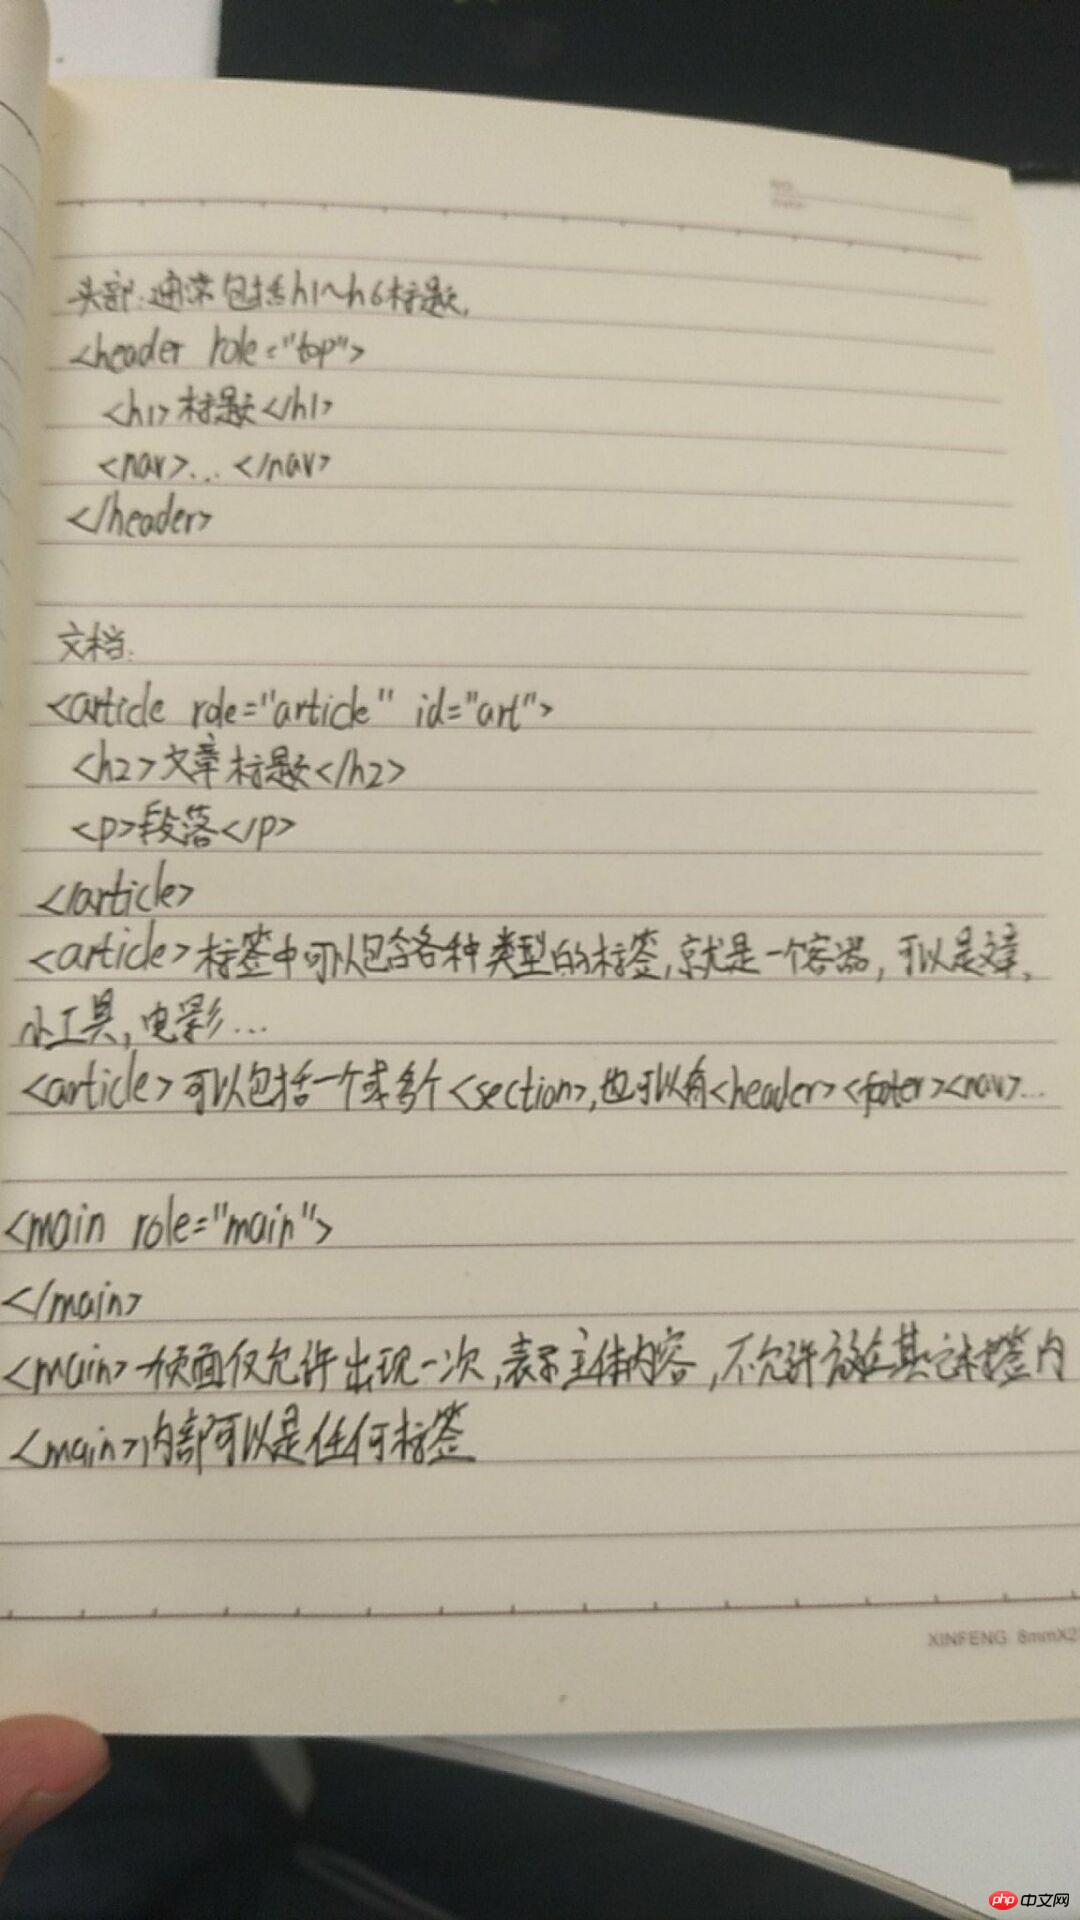 头部:通常包括h1~h6标题.
<header role="top">
<h1>标题</h1>
<nav>...</nav>
</header>
文档:
<article role="article" id="art">
<h2>文章标题</h2>
<p>段落</p>
</article>
<article>标签中可以包含各种类型的标签,就是一个容器,可以是文章,
小工具,电影...
<article>可以包括一个或多个<section>,也可以有<header><footer><nav>...
<main role="main">
</main>
<main>一个页面仅允许出现一次,表示主体内容,不允许放在其它标签内
<main>内部可以是任何标签
XINFENG 8mmX2
php 中文网